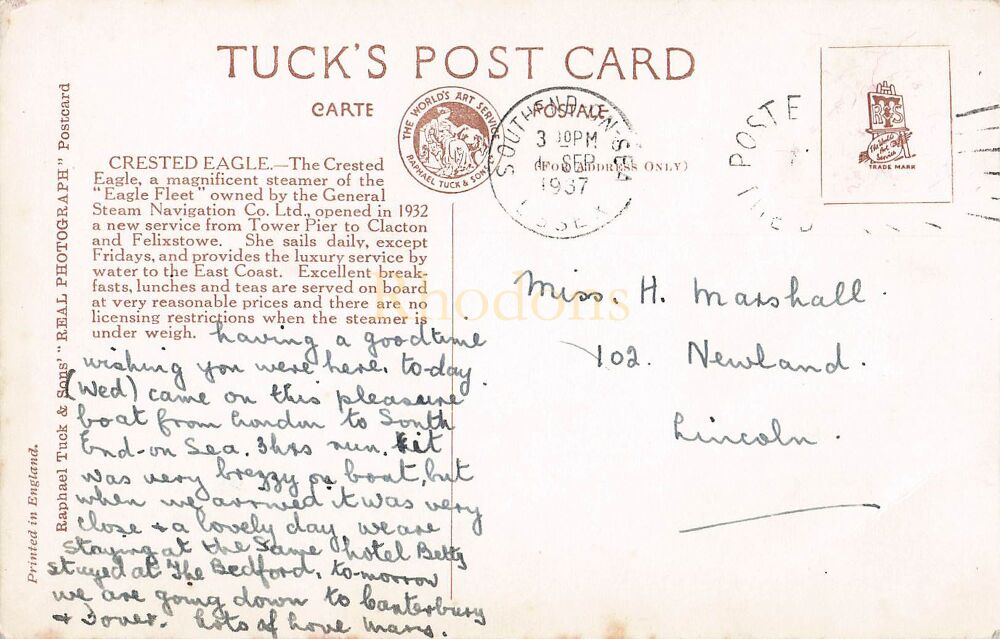 TUCK'S POST CARD
CARTE
POSTALE
(FOR ADDRESS ONLY)
THE WORLD'S ART SERVICE
RAPHAEL TUCK & SONS
SOUTHEND-ON-SEA
3 PM
4 SEP
1937
ESSEX
POSTE
R S
The World's Art Service
TRADE MARK
CRESTED EAGLE.—The Crested
Eagle, a magnificent steamer of the
"Eagle Fleet" owned by the General
Steam Navigation Co. Ltd., opened in 1932
a new service from Tower Pier to Clacton
and Felixstowe. She sails daily, except
Fridays, and provides the luxury service by
water to the East Coast. Excellent break-
fasts, lunches and teas are served on board
at very reasonable prices and there are no
licensing restrictions when the steamer is
under weigh.
having a good time
wishing you were here. to-day
(Wed) came on this pleasure
boat from London to South
End-on Sea. 3hrs run. it
was very brezzy on boat, but
when we arrived it was very
close & a lovely day we are
staying at the same hotel Betty
stayed at The Bedford, to-morrow
we are going down to Canterbury
& Dover. Lots of love Mary.
Miss. H. Marshall.
102. Newland.
Lincoln.
Rhodons
Raphael Tuck & Sons' "REAL PHOTOGRAPH" Postcard
Printed in England.